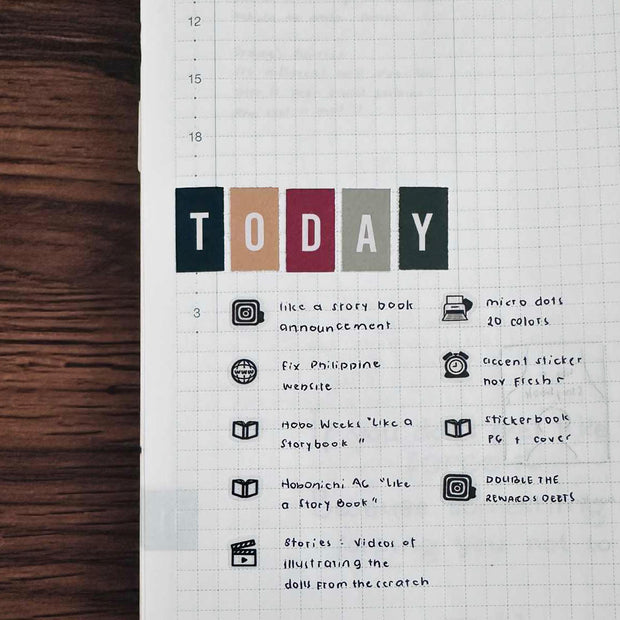 12
15
18
TODAY
3
like a story book
announcement
Fix Philippine
website
Hobo Weeks "Like a
Storybook "
Hobonichi A6 "Like
a Story Book"
Stories : Videos of
illustrating the
dolls From the scratch
micro dots
20 colors
accent sticker
nov Fresh r
stickerbook
PG + cover
DOUBLE THE
REWARDS DEETS